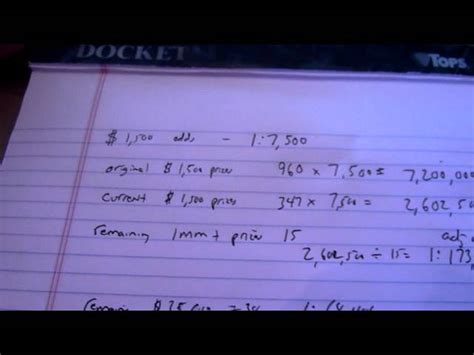 DOCKET TOPS
$1,500 odds - 1:7,500
original $1,500 prizes 960 x 7,500= 7,200,000
current $1,500 prizes 347 x 7,500 = 2,602,50
remaining 1mm+ prizes 15 adj o
2,602,500 ÷ 15= 1:173,